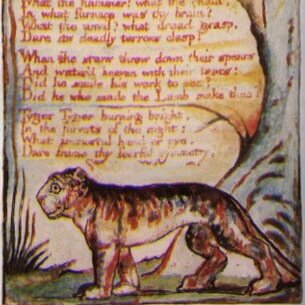 What the hammer? what the chain,
In what furnace was thy brain?
What the anvil? what dread grasp,
Dare its deadly terrors clasp!
When the stars threw down their spears
And water'd heaven with their tears:
Did he smile his work to see?
Did he who made the Lamb make thee?
Tyger Tyger burning bright,
In the forests of the night:
What immortal hand or eye,
Dare frame thy fearful symmetry?